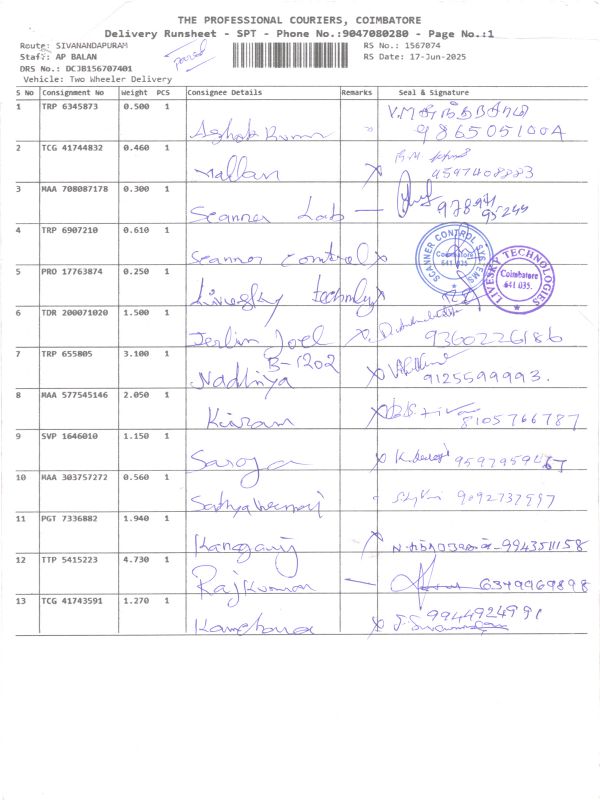 THE PROFESSIONAL COURIERS, COIMBATORE
Delivery Runsheet - SPT - Phone No.:9047080280 - Page No.:1
Route: SIVANANDAPURAM
RS No.: 1567074
Staff: AP BALAN
RS Date: 17-Jun-2025
DRS No.: DCJB156707401
Vehicle: Two Wheeler Delivery
S No Consignment No Weight PCS Consignee Details Remarks Seal & Signature
1 TRP 6345873 0.500 1 Ashok Kumar 9865051004
2 TCG 41744832 0.460 1 Mallan 9597408883
3 MAA 708087178 0.300 1 Scanner Lab 978971 95244
4 TRP 6907210 0.610 1 Scanner Control SCANNER CONTROL SYSTEMS Coimbatore 641 035
5 PRO 17763874 0.250 1 LIVESKY TECHNOLOGIES Coimbatore 641 035.
6 TDR 200071020 1.500 1 Jerlin Joel 9360226186
7 TRP 655805 3.100 1 B-1202 Nadhiya 9125599993.
8 MAA 577545146 2.050 1 Kiiram 8105766787
9 SVP 1646010 1.150 1 Saroja
10 MAA 303757272 0.560 1 9092737997
11 PGT 7336882 1.940 1 9943511158
12 TTP 5415223 4.730 1 Rajkumar 6349969898
13 TCG 41743591 1.270 1 9944924991